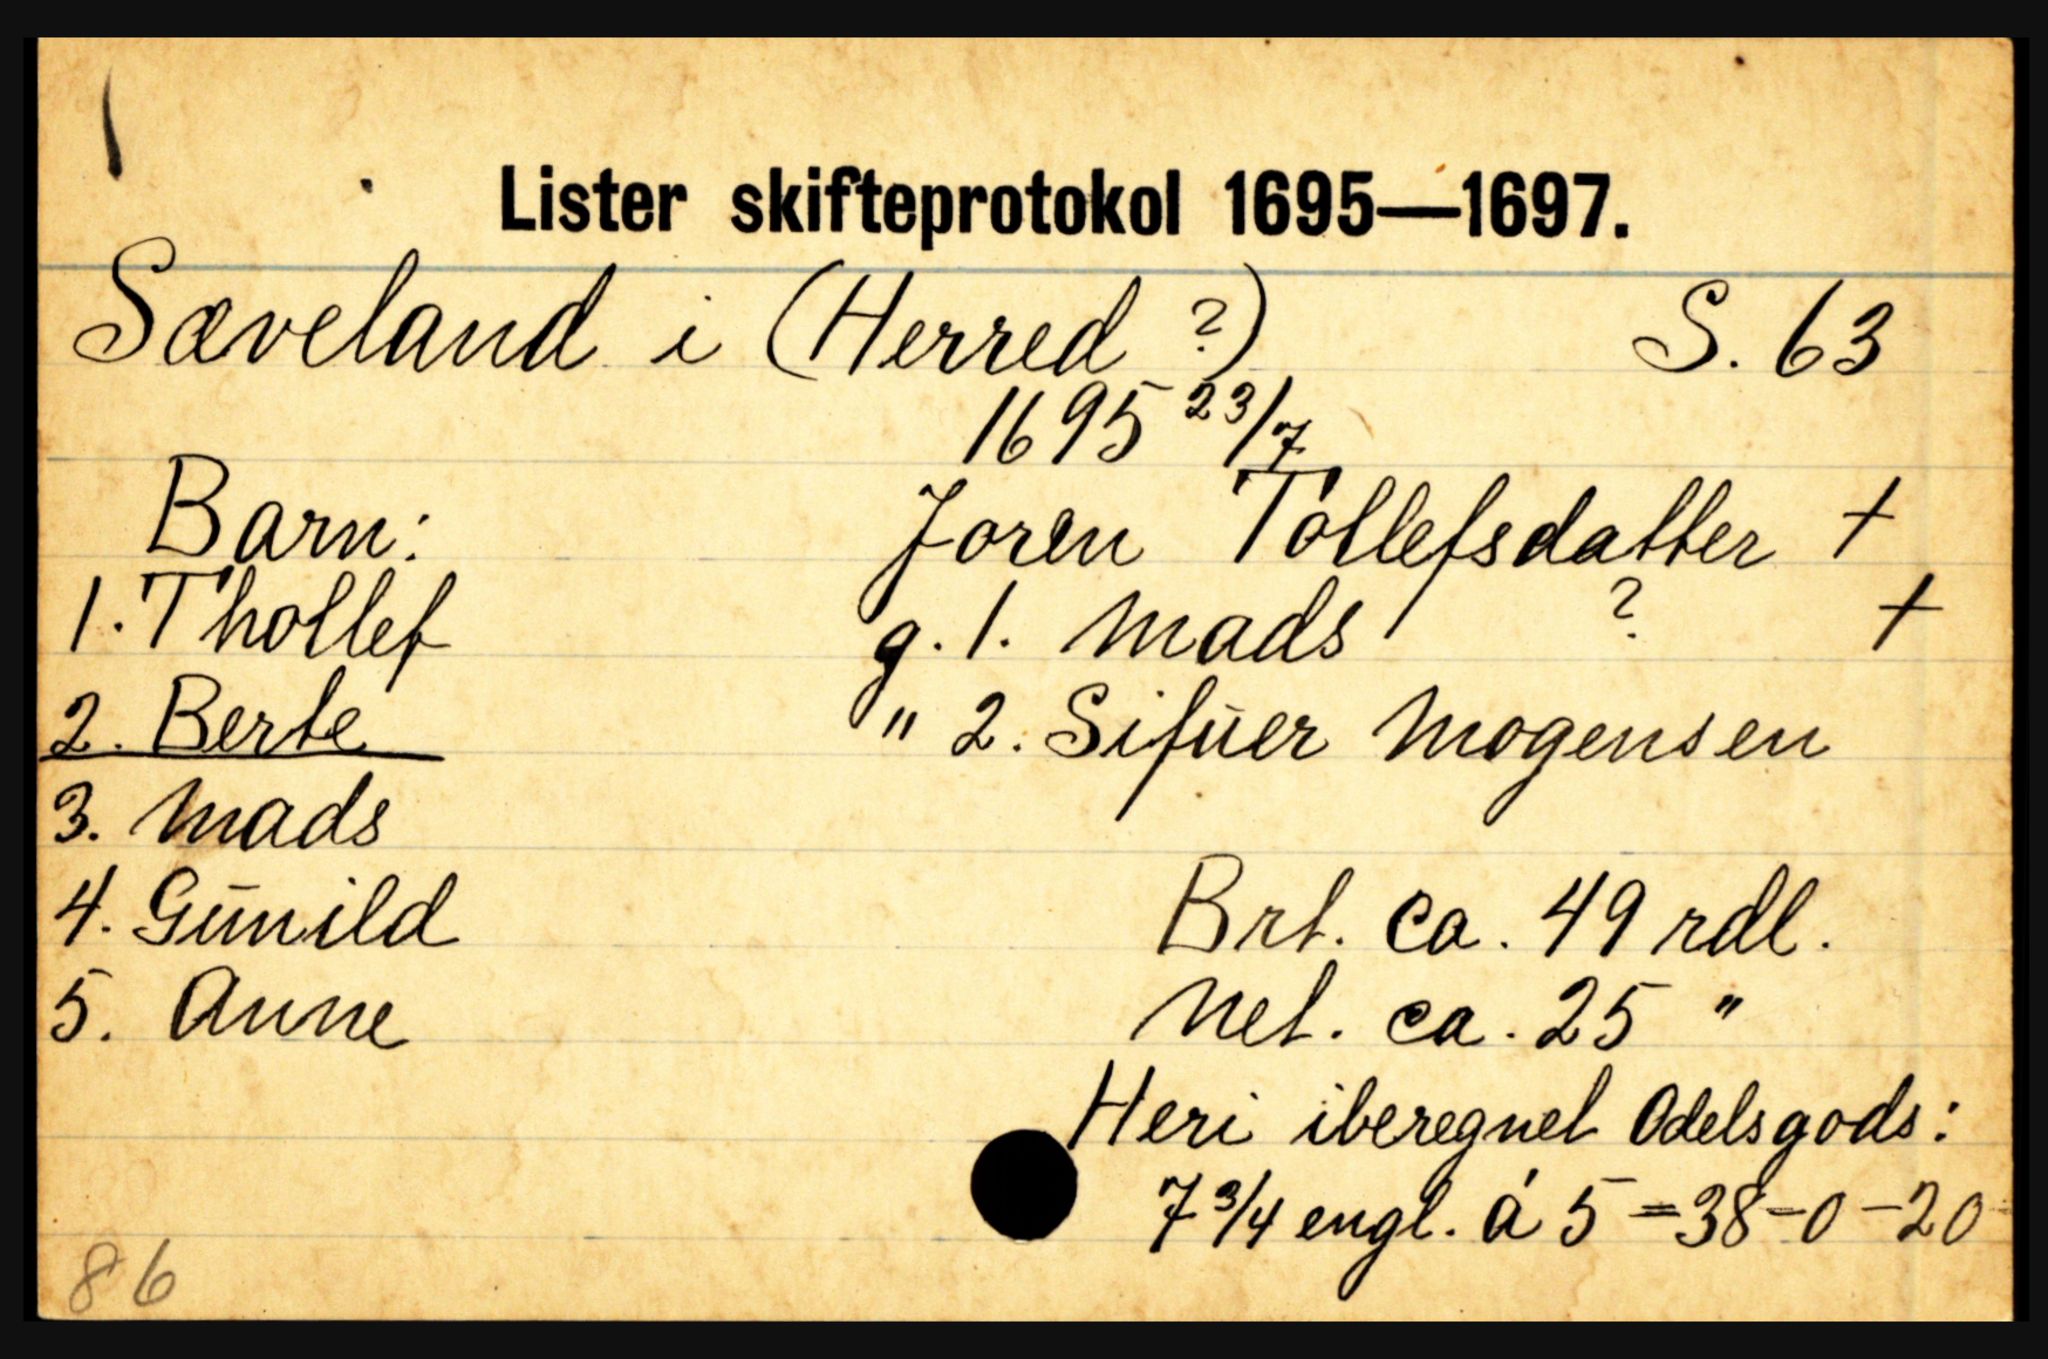 Lister skifteprotokol 1695—1697.
Sæveland i (Herred ?) S. 63
1695 23/7
Barn: Joren Tollefsdatter +
1. Thollef g. 1. Mads ? +
2. Berte " 2. Sifūer Mogensen
3. Mads
4. Gūnild Brt. ca. 49 rdl.
5. Anne Net. ca. 25 "
Heri iberegnet Odelsgods:
7 3/4 engl. á 5 = 38-0-20
86